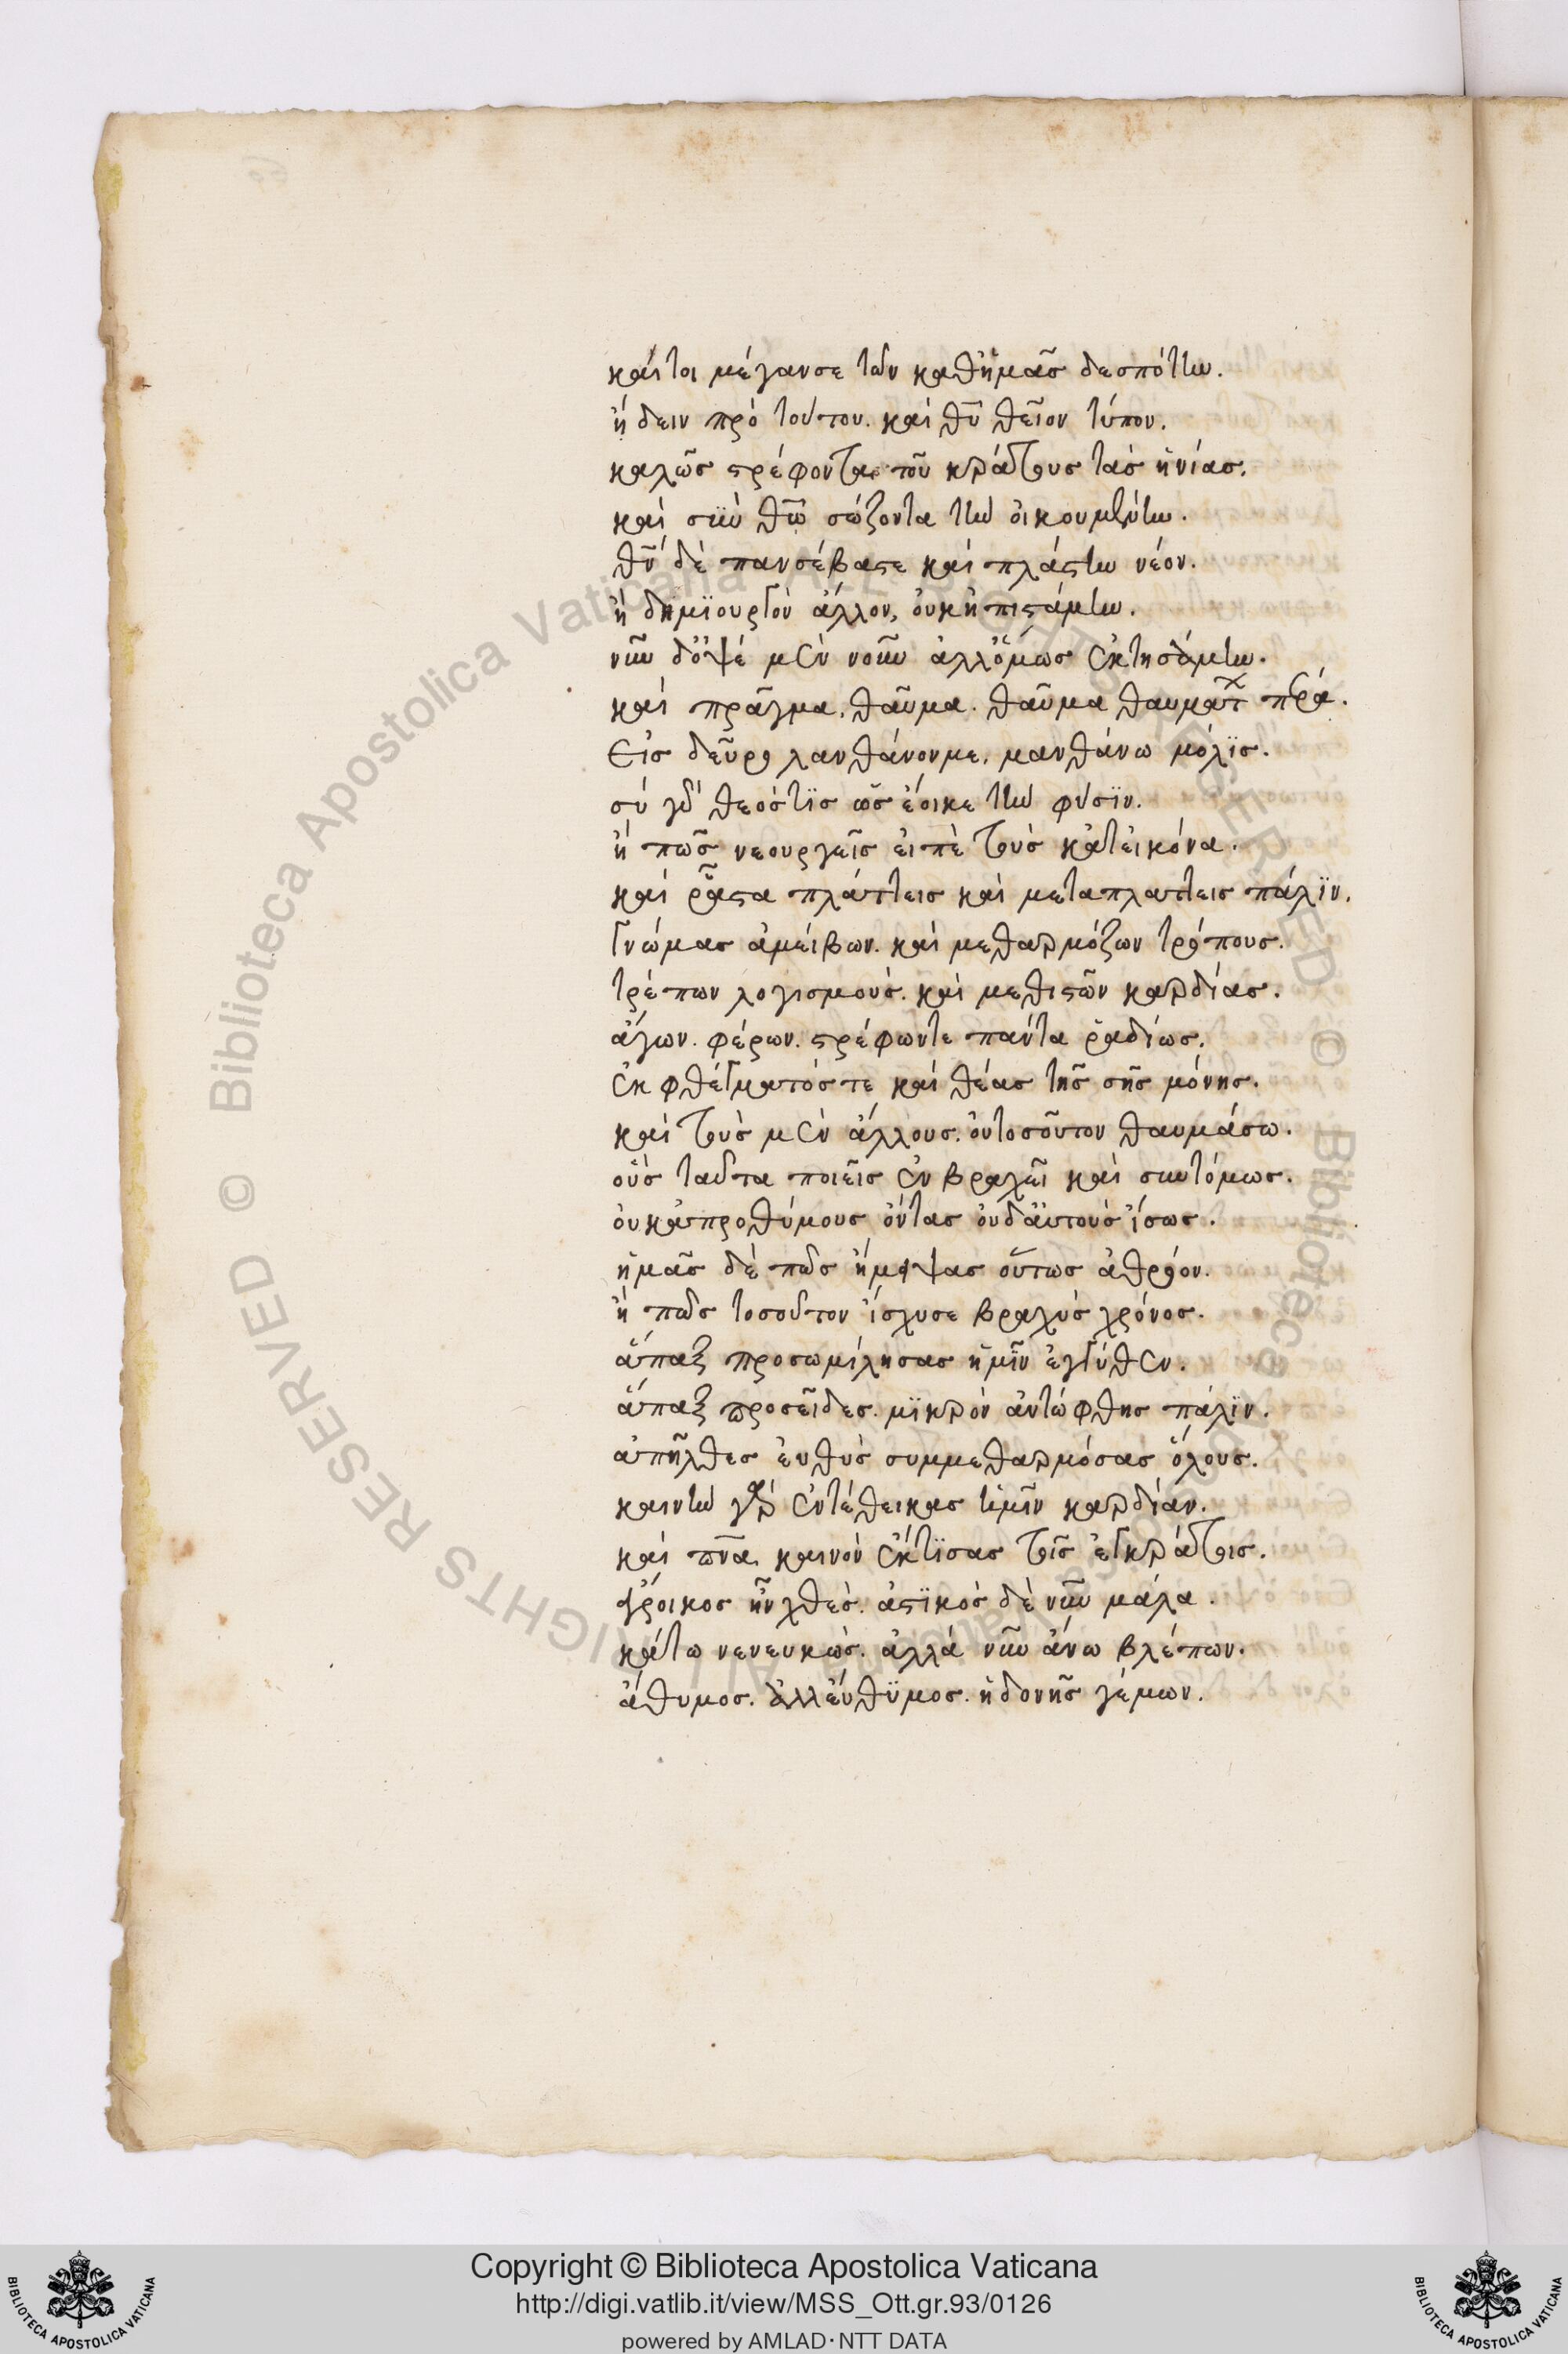 καίτοι μέγαν σε τῶν καθημᾶς δεσπότην.
ᾔδειν πρὸ τούτου. καὶ θῦ θεῖον τύπον.
καλῶς στρέφοντα τοῦ κράτους τὰς ἡνίας.
καὶ σὺν θῶ σώζοντα τὴν οἰκουμένην.
θῦ δὲ πανσέβαστε καὶ πλάστην νέον.
ἢ δημϊουργὸν ἄλλον, οὐκ ἠπιστάμην.
νῦν δ' ὀψέ μὲν νοῦν ἀλλ' ὅμως ἐκτησάμην.
καὶ πρᾶγμα, θαῦμα. θαῦμα θαυμάτ πέρα.
Εἰς δεῦρο λανθάνον με, μανθάνω μόλϊς.
σύ γὰρ θεός τϊς ὡς ἔοικε τὴν φύσϊν.
ἢ πῶς νεουργεῖς εἰπὲ τοὺς κατεικόνα.
καὶ ῥᾷστα πλάττεις καὶ μεταπλάττεις πάλϊν.
γνώμας ἀμείβων. καὶ μεθαρμόζων τρόπους.
τρέπων λογισμοὺς. καὶ μεθιστῶν καρδίας.
ἄγων. φέρων. στρέφων τε πάντα ῥαδίως.
ἐκ φθέγματός τε καὶ θέας τῆς σῆς μόνης.
καὶ τοὺς μὲν ἄλλους. οὐ τοσοῦτον θαυμάσω.
οὓς ταῦτα ποιεῖς ἐν βραχεῖ καὶ συντόμως.
οὐκ ἀπροθύμους ὄντας οὐδ' αὐτοὺς ἴσως.
ἡμᾶς δὲ πῶς ἤμειψας οὕτως ἀθρόον.
ἢ πῶς τοσοῦτον ἴσχυσε βραχὺς χρόνος.
ἅπαξ προσωμίλησας ἡμῖν ἐγγύθεν.
ἅπαξ προσεῖδες. μϊκρὸν ἀντώφθης πάλϊν.
ἀπῆλθες εὐθὺς συμμεθαρμόσας ὅλους.
καινὴν γὰρ ἐντέθεικας ἡμῖν καρδίαν.
καὶ πνα καινὸν ἔκτϊσας τοῖς ἐγκάτοις.
ἄγροικος ἦν χθές. ἀστϊκὸς δὲ νῦν μάλα.
κάτω νενευκώς. ἀλλὰ νῦν ἄνω βλέπων.
ἄθυμος. ἀλλ' εὔθϋμος. ἡδονῆς γέμων.
Copyright © Biblioteca Apostolica Vaticana
http://digi.vatlib.it/view/MSS_Ott.gr.93/0126
powered by AMLAD·NTT DATA